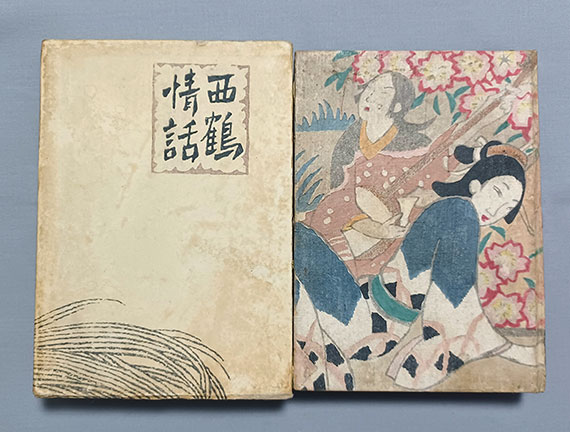 西鶴
情話